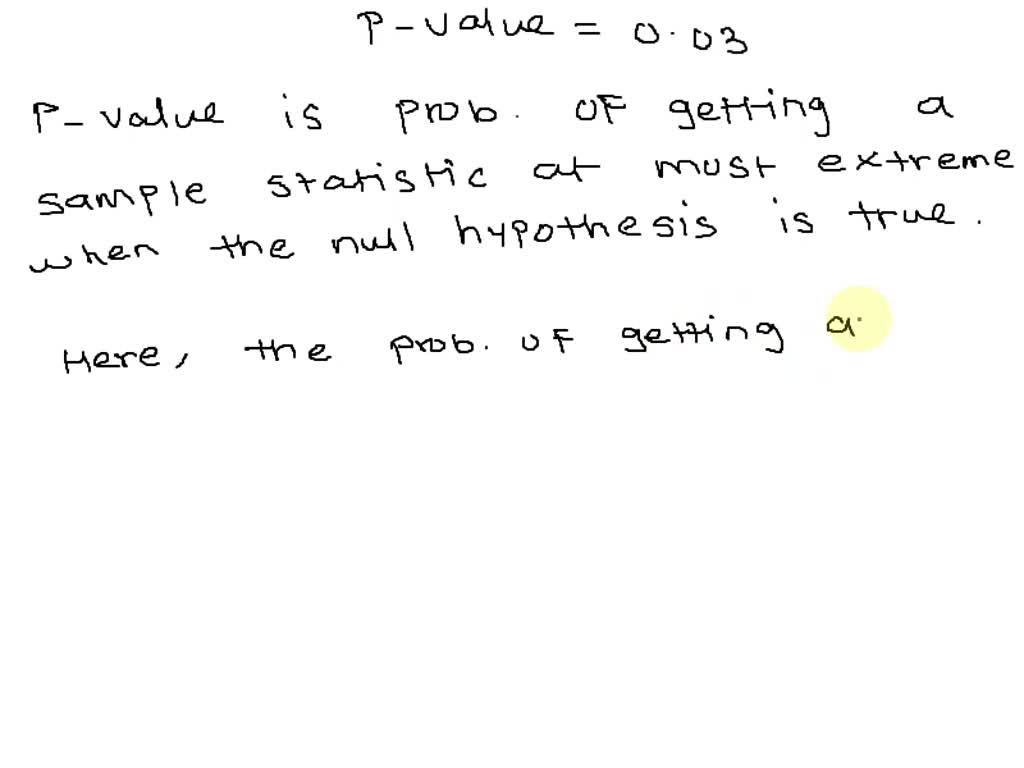 P-value = 0.03
P-value is prob. of getting a
sample statistic at most extreme
when the null hypothesis is true.
Here, the prob. of getting a